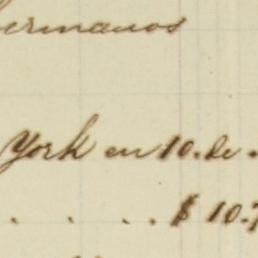 hermanos
York en 10. de .
. . . . $ 10.7